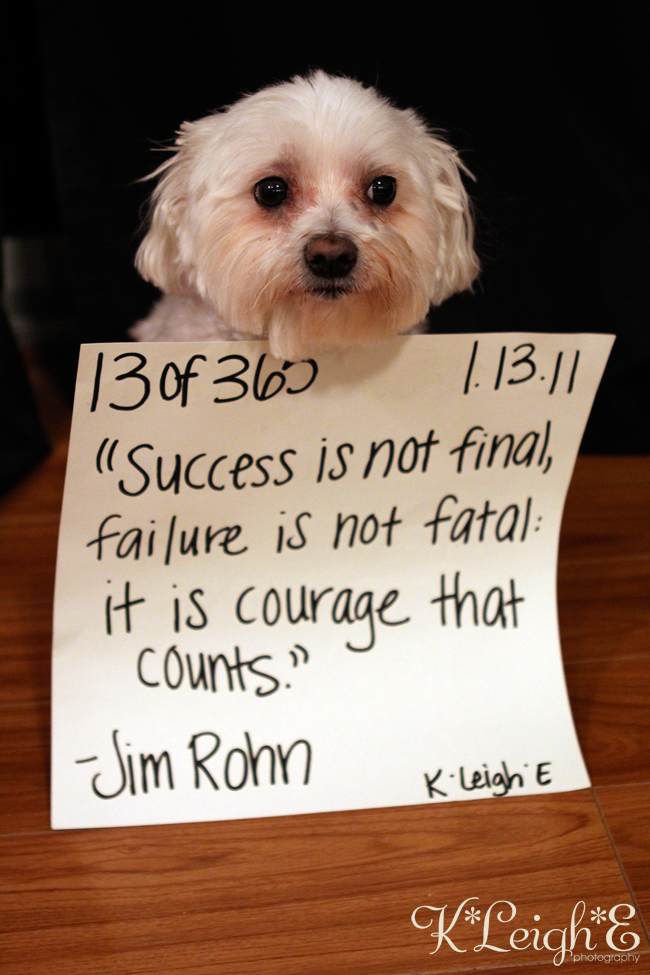 13 of 365 1.13.11
"Success is not final,
failure is not fatal:
it is courage that
counts."
-Jim Rohn
K·Leigh·E
K*Leigh*E
photography